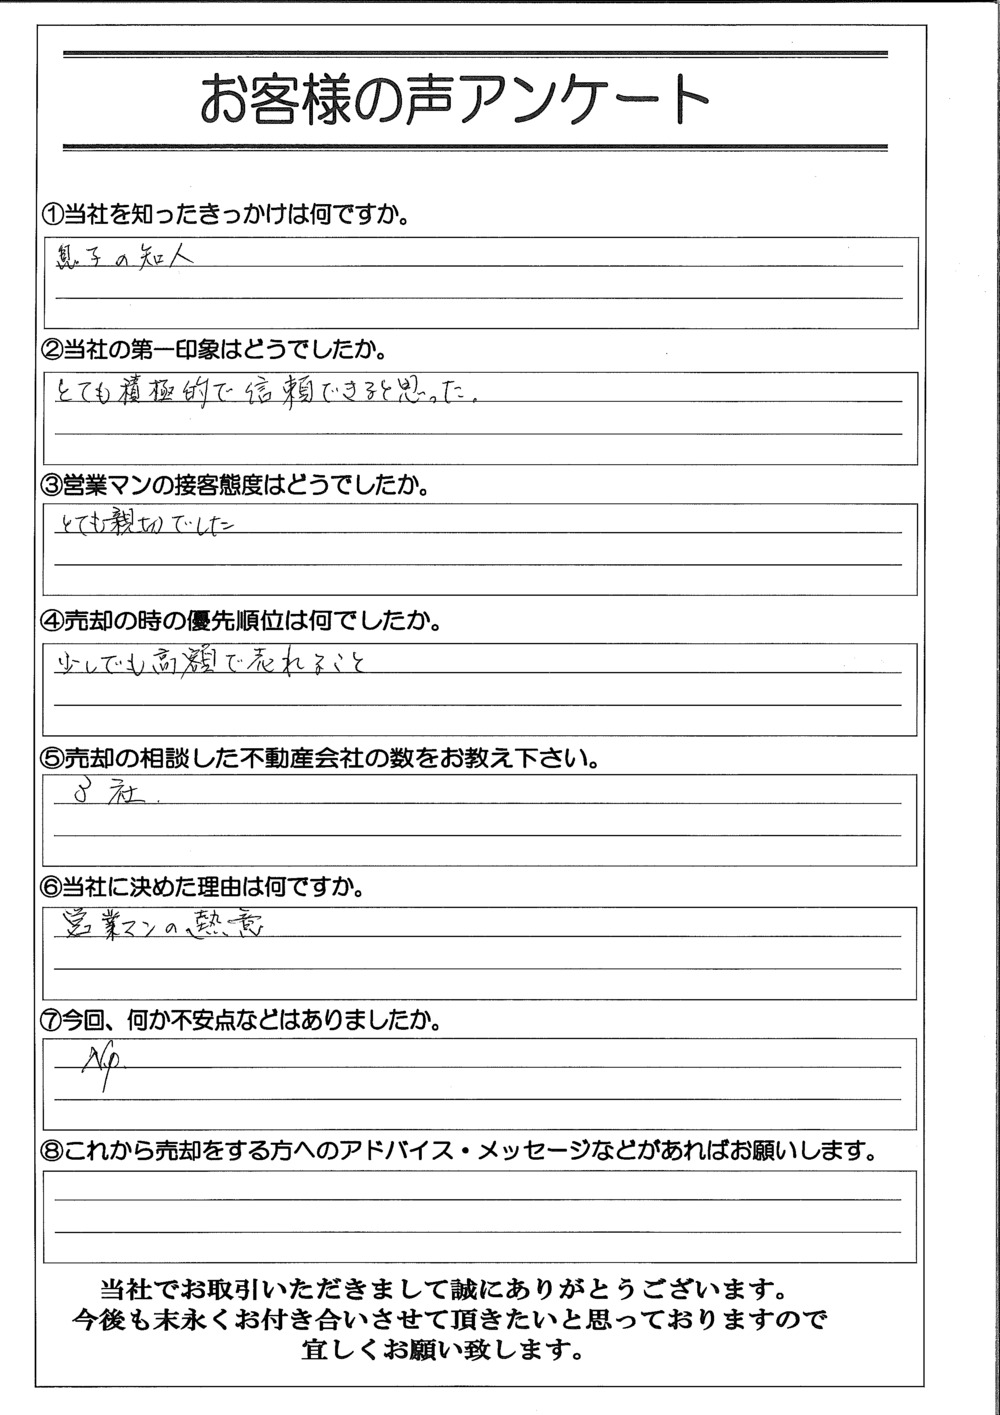 お客様の声アンケート
①当社を知ったきっかけは何ですか。
息子の知人
②当社の第一印象はどうでしたか。
とても積極的で信頼できると思った。
③営業マンの接客態度はどうでしたか。
とても親切でした
④売却の時の優先順位は何でしたか。
少しでも高額で売れること
⑤売却の相談した不動産会社の数をお教え下さい。
3社.
⑥当社に決めた理由は何ですか。
営業マンの熱意
⑦今回、何か不安点などはありましたか。
⑧これから売却をする方へのアドバイス・メッセージなどがあればお願いします。
当社でお取引いただきまして誠にありがとうございます。
今後も末永くお付き合いさせて頂きたいと思っておりますので
宜しくお願い致します。